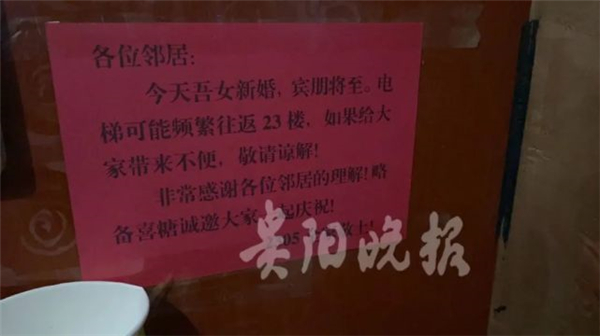 各位邻居:
今天吾女新婚，宾朋将至。电
梯可能频繁往返 23 楼，如果给大
家带来不便，敬请谅解!
非常感谢各位邻居的理解!略
备喜糖诚邀大家 起庆祝!
贵阳晚报